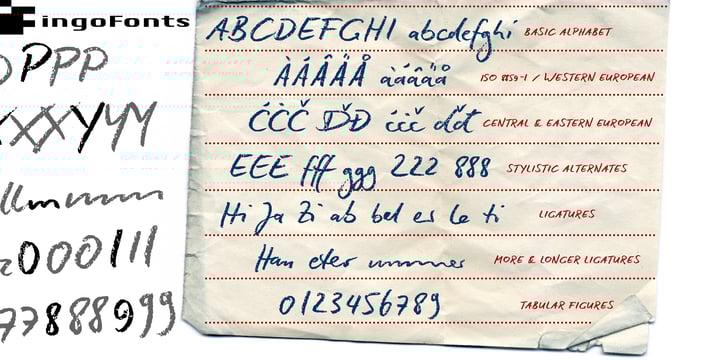 ingoFonts
PPP
XXXYYY
000111
77888999
ABCDEFGHI abcdefghi BASIC ALPHABET
ÀÁÂÃÄÅ àáâãäå ISO 8859-1 / WESTERN EUROPEAN
ĆĊČ ĎĐ ćċč ďđ CENTRAL & EASTERN EUROPEAN
EEE fff ggg 222 888 STYLISTIC ALTERNATES
Hi Ja Zi ab bel es le ti LIGATURES
Han eter MORE & LONGER LIGATURES
0123456789 TABULAR FIGURES